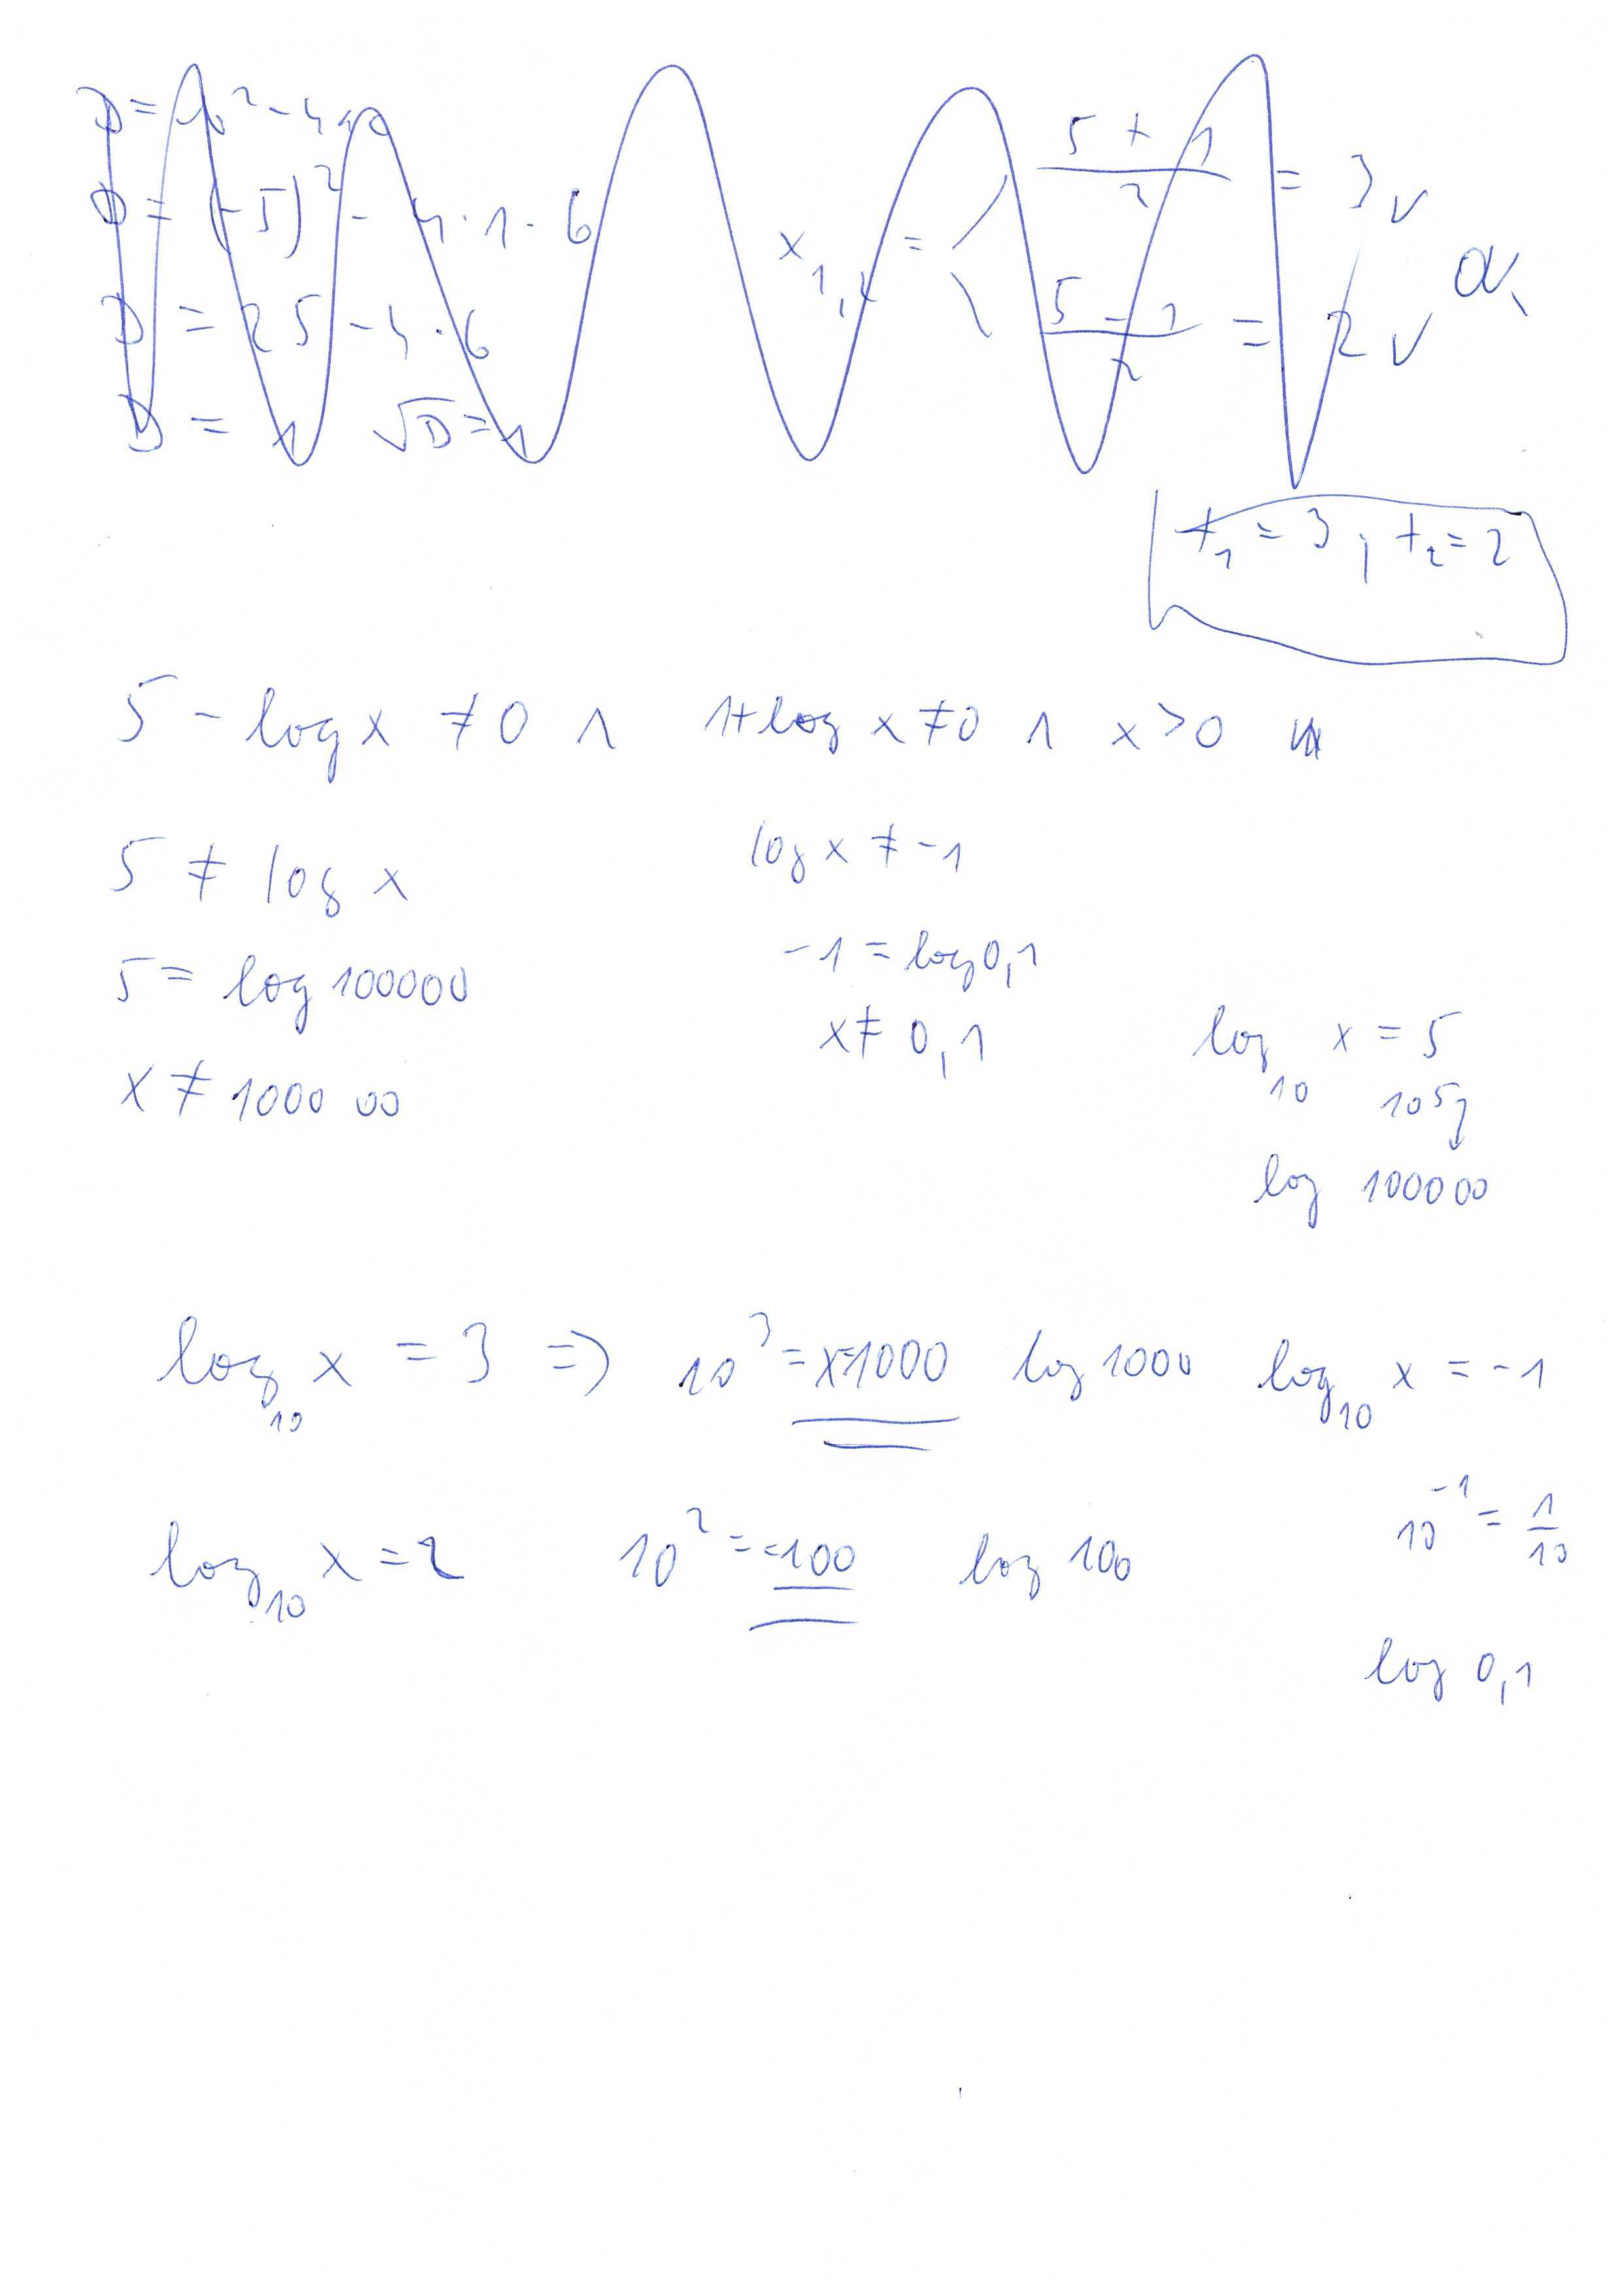 D = b² - 4ac
D = (-5)² - 4·1·6
D = 25 - 4·6
D = 1 √D = 1
x₁,₂ =
5 + 1 / 2 = 3 v
5 - 1 / 2 = 2 v
t₁ = 3 ; t₂ = 2
5 - log x ≠ 0 ∧ 1 + log x ≠ 0 ∧ x > 0
5 ≠ log x
log x ≠ -1
5 = log 100000
-1 = log 0,1
x ≠ 100000
x ≠ 0,1
log₁₀ x = 5
10⁵
log 100000
log₁₀ x = 3 => 10³ = x = 1000 log 1000 log₁₀ x = -1
log₁₀ x = 2 10² = = 100 log 100
10⁻¹ = 1/10
log 0,1